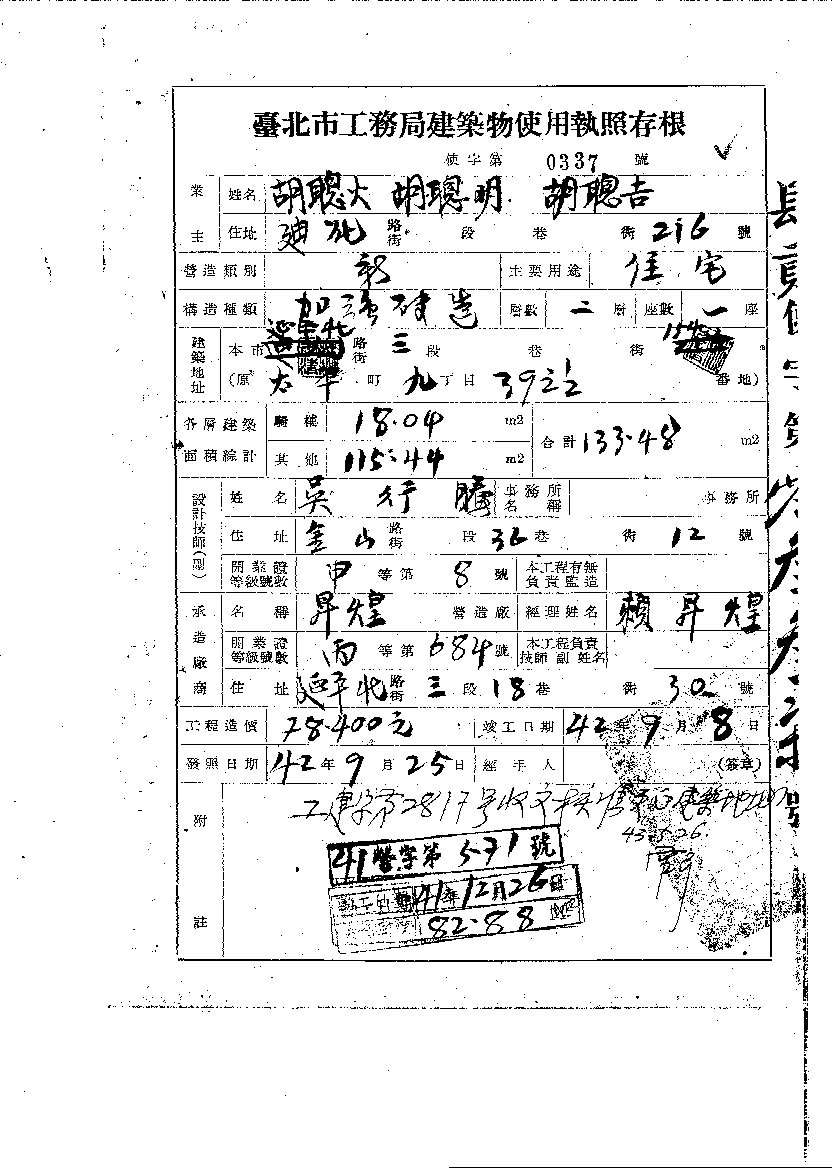 臺北市工務局建築物使用執照存根
使字第 0337 號
業主 姓名 胡聰火 胡聰明 胡聰吉
住址 迪化 路街 段 巷 衖 216 號
營造類別 新 主要用途 住宅
構造種類 加強磚造 層數 二 層 座數 一 座
建築地址 本市 延平北 路街 三 段 巷 衖 154
(原 太平 町 九 丁目 39之2 番地)
各層建築面積總計 騎樓 18.04 m2 合計 133.48 m2
其他 115.44 m2
設計技師(副) 姓名 吳行 事務所名稱 事務所
住址 金山 路街 段 36 巷 衖 12 號
開業證等級號數 甲 等第 8 號 本工程有無負責監造
承造廠商 名稱 昇煌 營造廠 經理姓名 賴昇煌
開業證等級號數 丙 等第 684 號 本工程負責技師副姓名
住址 延平北 路街 三 段 18 巷 衖 30 號
工程造價 78.400元 竣工日期 42 年 9 月 8 日
發照日期 42 年 9 月 25 日 經手人 (簽章)
附註 工建字第2817号收文
43.5.26
41營字第 571 號
41年12月26日
82.88